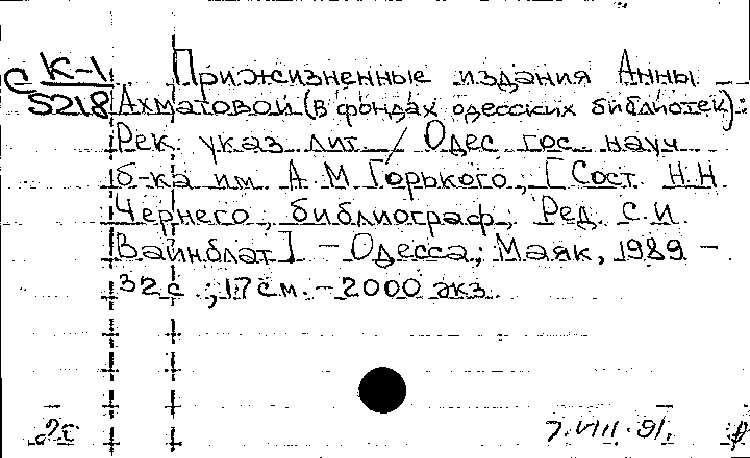 С К-1
5218
Прижизненные издания Анны
Ахматовой (в фондах одесских библиотек):
Рек указ лит / Одес гос науч
б-ка им А М Горького; [Сост Н.Н
Чернего, библиограф; Ред. С.И
Вайнблат] - Одесса; Маяк, 1989 -
32с ; 17см. - 2000 экз
7.VIII.91.